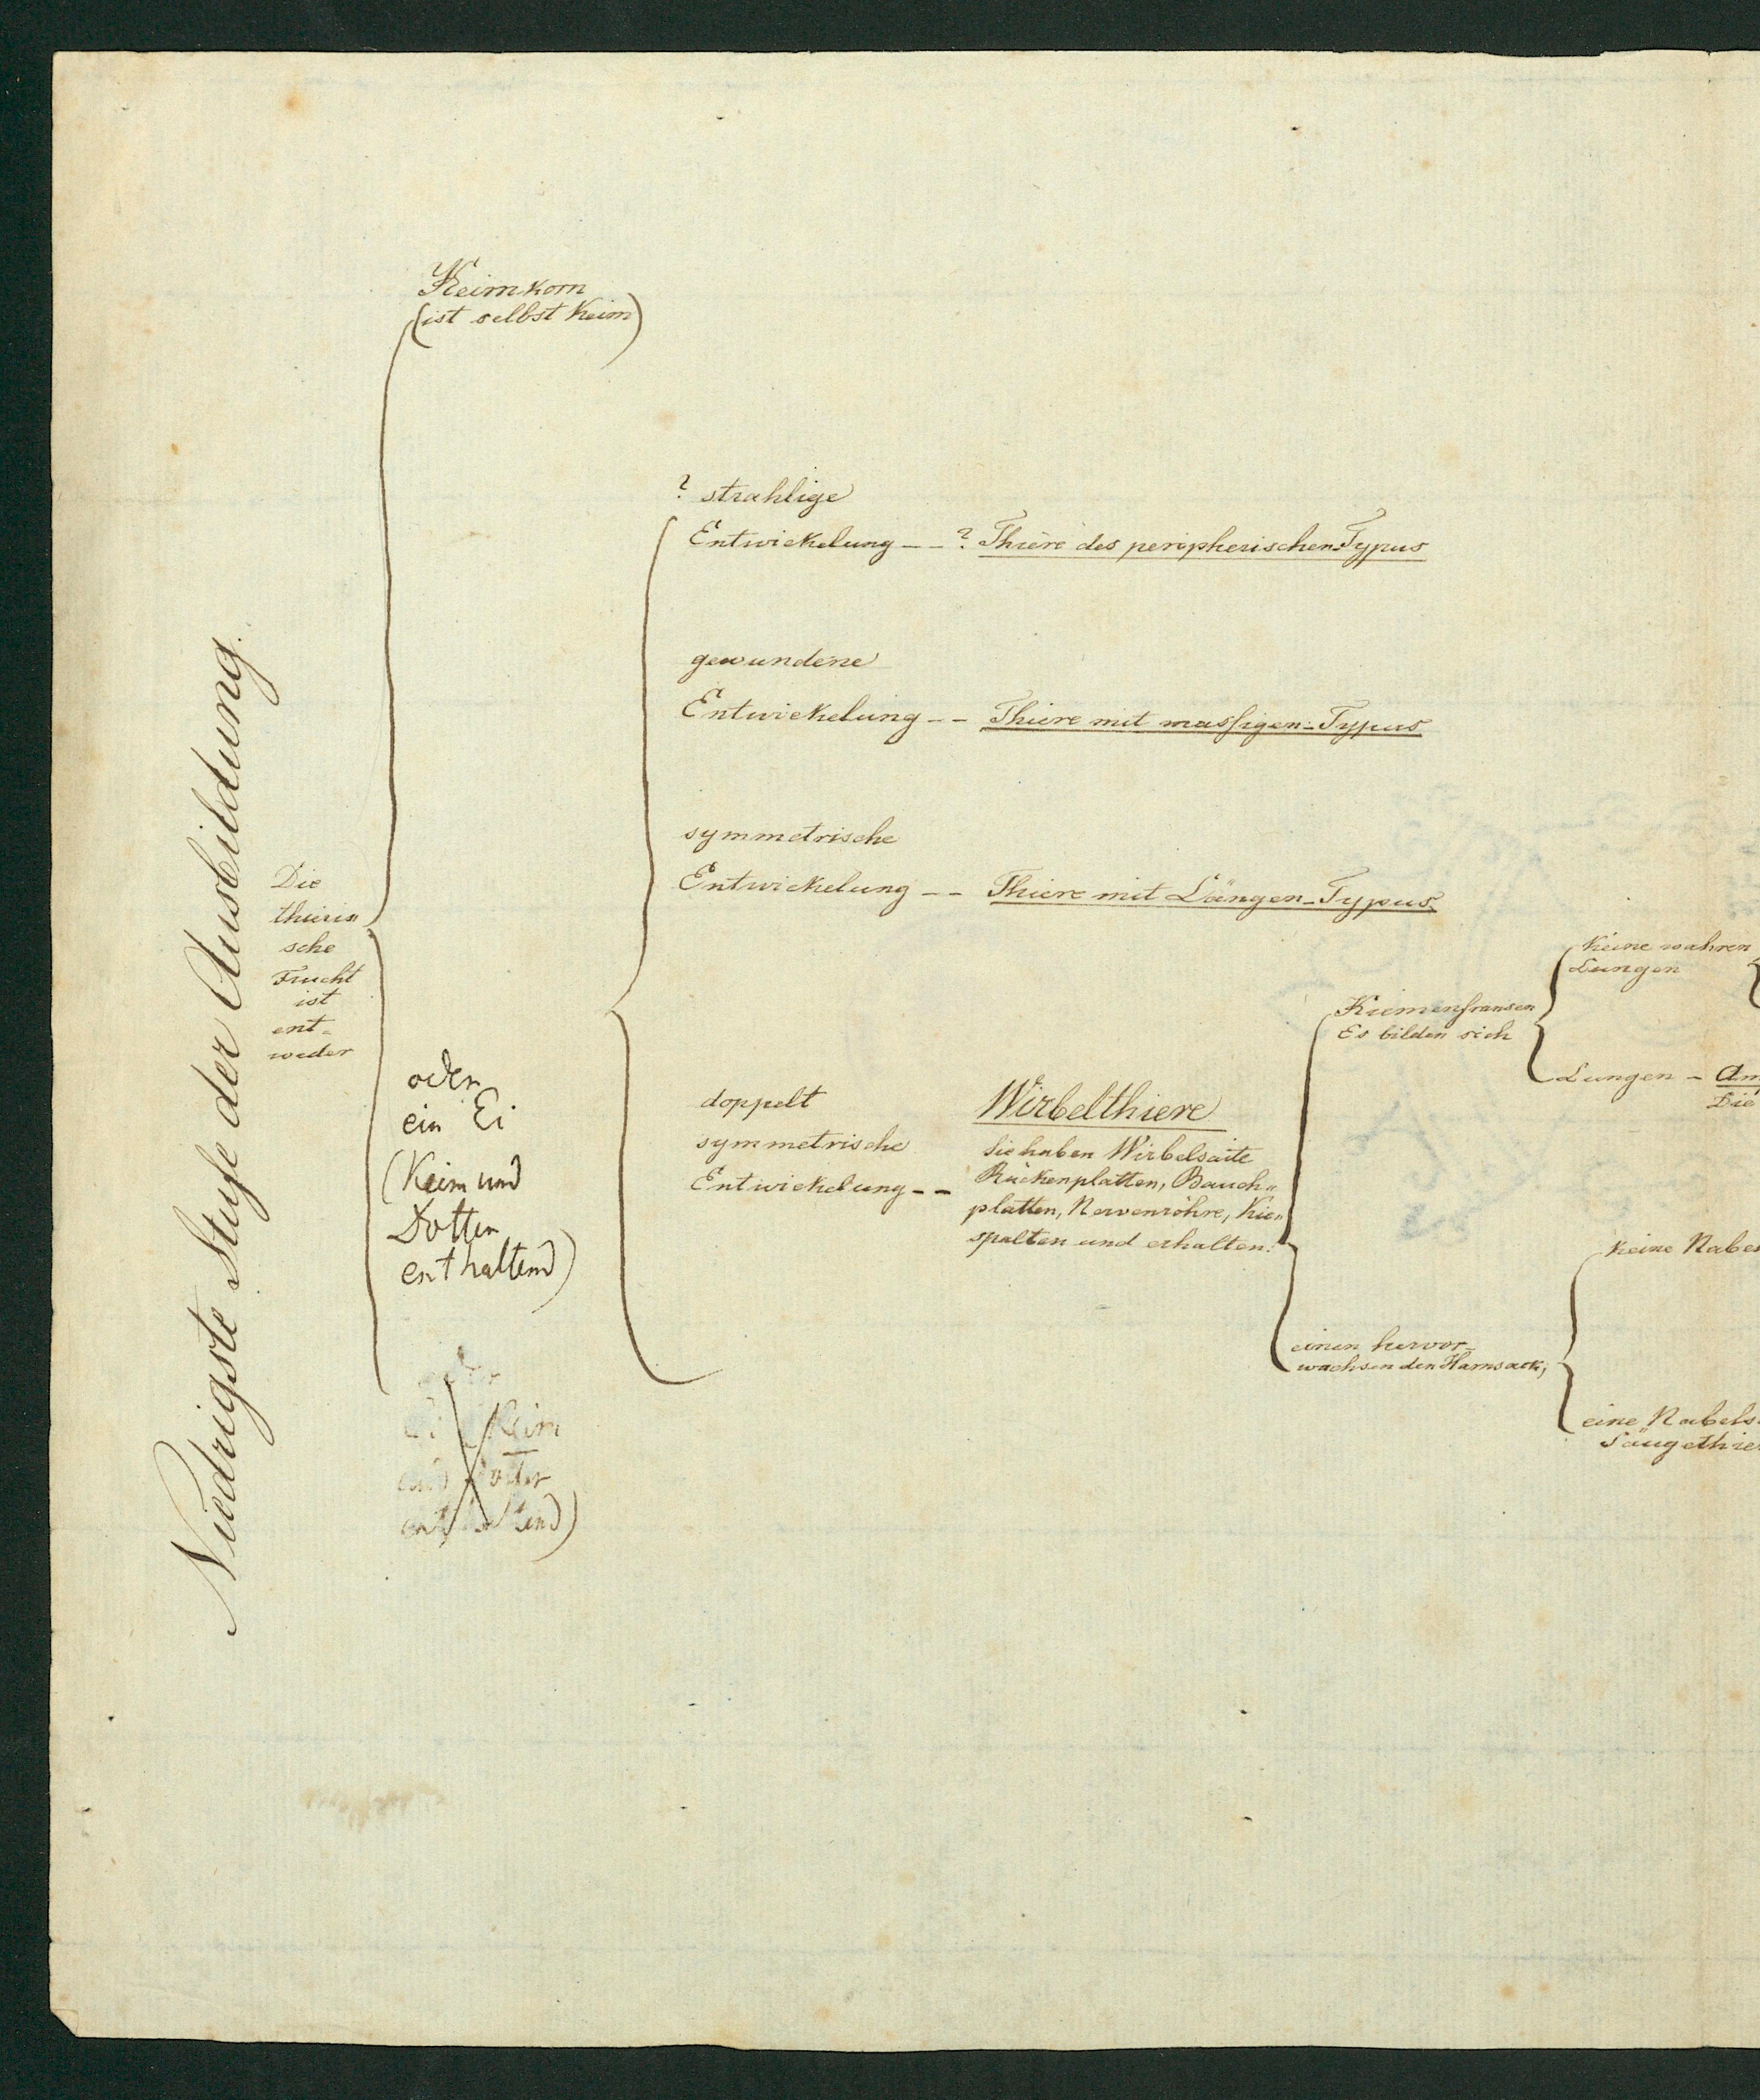 Niedrigste Stufe der Ausbildung.
Die
thieri„
sche
Frucht
ist
ent„
weder
Keimkorn
(ist selbst Keim)
oder
ein Ei
(Keim und
Dotter
enthaltend)
oder
Ei (Keim
und Dotter
enthaltend)
? strahlige
Entwickelung – – ? Thiere des peripherischen-Typus
gewundene
Entwickelung – – Thiere mit massigen-Typus
symmetrische
Entwickelung – – Thiere mit Längen-Typus
doppelt
symmetrische
Entwickelung – –
Wirbelthiere
Sie haben Wirbelsaite
Rückenplatten, Bauch„
platten, Nervenröhre, Kie„
spalten und erhalten:
Kiemenfransen
Es bilden sich
keine wahren
Lungen
Lungen – Am
Die
einen hervor-
wachsenden Harnsack,
keine Nabe
eine Nabels
Säugethie